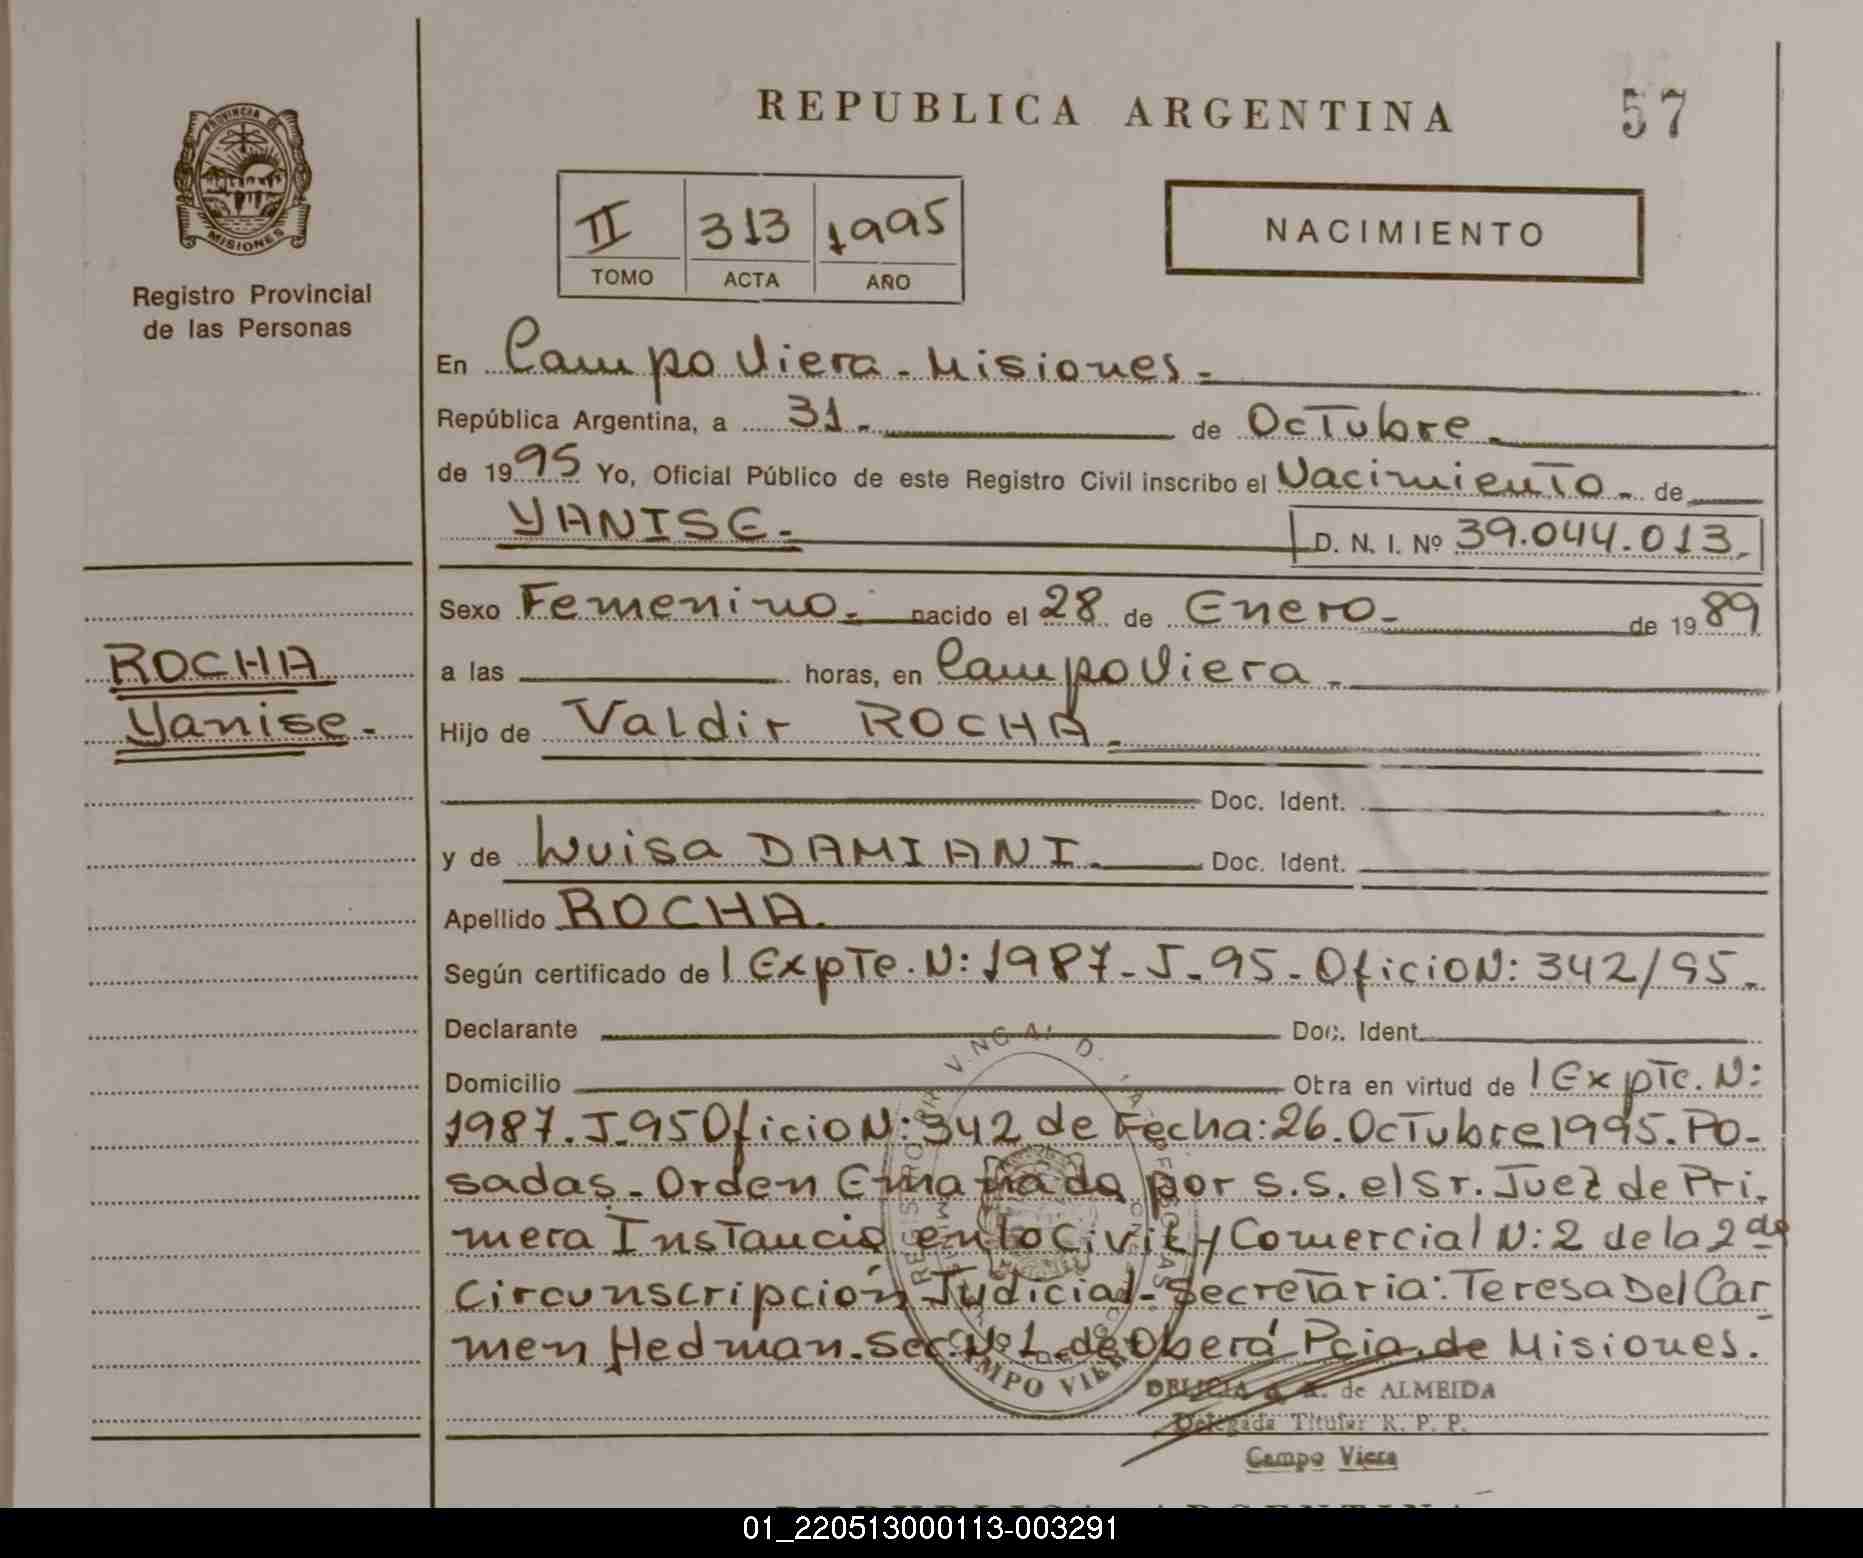 REPUBLICA ARGENTINA
57
PROVINCIA DE
MISIONES
Registro Provincial
de las Personas
II 313 1995
TOMO ACTA AÑO
NACIMIENTO
En Campo Viera - Misiones -
República Argentina, a 31. de Octubre
de 1995 Yo, Oficial Público de este Registro Civil inscribo el Nacimiento. de
YANISE. D. N. I. Nº 39.044.013.
Sexo Femenino. nacido el 28 de Enero. de 1989
ROCHA
Yanise.
a las horas, en Campo Viera.
Hijo de Valdir ROCHA.
Doc. Ident.
y de Luisa DAMIANI. Doc. Ident.
Apellido ROCHA.
Según certificado de 1 Expte. N: 1987-J-95- Oficio N: 342/95.
Declarante Doc. Ident.
Domicilio Otra en virtud de 1 Expte. N:
1987.J.95 Oficio N: 342 de Fecha: 26. Octubre 1995. Po-
sadas. Orden Emanada por S.S. el Sr. Juez de Pri-
mera Instancia en lo Civil y Comercial N: 2 de la 2da
Circunscripción Judicial - Secretaria: Teresa Del Car
men Hedman. Sec. Nº 1. de Oberá Pcia. de Misiones.
CAMPO VIERA
DELICIA de ALMEIDA
Delegada Titular R. P. P.
Campo Viera
REPUBLICA ARGENTINA
01_220513000113-003291